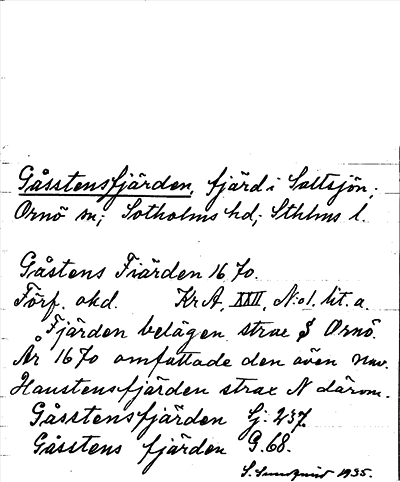 Gåsstensfjärden, fjärd i Saltsjön;
Ornö sn; Sotholms hd; Sthlms l.
Gåstens Fiärden 1670.
Förf. okd. KrA, XXII, N:o1. lit. a.
Fjärden belägen strax S Ornö.
År 1670 omfattade den även nuv.
Haustensfjärden strax N därom.
Gåsstensfjärden Gj: 237.
Gåsstens fjärden G.68.
S. 1935.